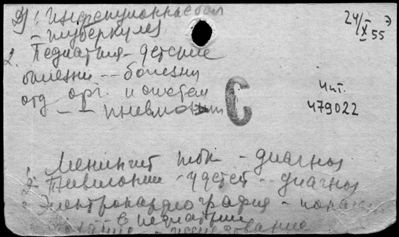 1. Инфекционные бол
- туберкулез
2. Педиатрия - детские
болезни -- болезни
отд. орг. и систем
- " - пневмонии
24/X 55
С
Чит.
479022
1. Менингит тбк - диагноз
2. Пневмонии - у детей - диагноз
3. Электрокардиография - показ
- в педиатрии
исследование